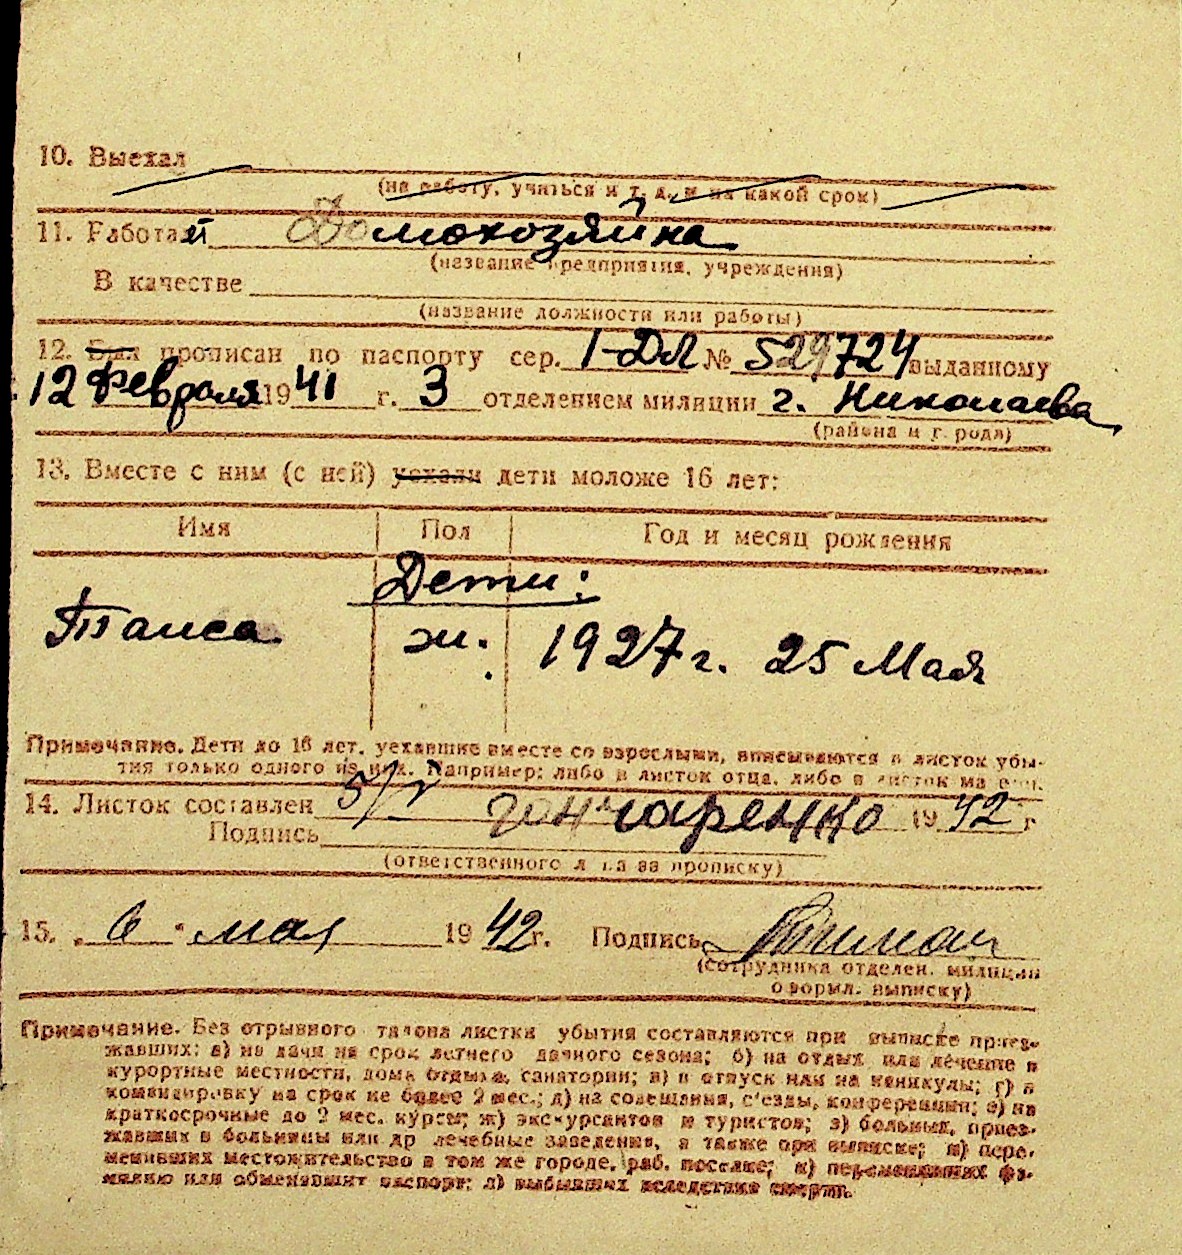 10. Выехал
(на работу, учиться и т. д., и на какой срок)
11. Работает Домохозяйка
(название предприятия, учреждения)
В качестве
(название должности или работы)
12. Был прописан по паспорту сер. I-ДЛ № 529724 выданному
12 Февраля 1941 г. 3 отделением милиции г. Николаева
(района и города)
13. Вместе с ним (с ней) уехали дети моложе 16 лет:
Имя Пол Год и месяц рождения
Дети:
Таиса ж. 1927 г. 25 Мая
Примечание. Дети до 16 лет, уехавшие вместе со взрослыми, вписываются в листок убы-
тия только одного из них. Например: либо в листок отца, либо в листок матери.
14. Листок составлен 5/V Гончаренко 1942 г
Подпись
(ответственного лица за прописку)
15. „6" мая 1942 г. Подпись
(сотрудника отделен. милиции
оформл. выписку)
Примечание. Без отрывного талона листки убытия составляются при выписке приез-
жавших: а) на дачи на срок летнего дачного сезона; б) на отдых или лечение в
курортные местности, дома отдыха, санатории; в) в отпуск или на каникулы; г) в
командировку на срок не более 2 мес.; д) на совещания, с'езды, конференции; е) на
краткосрочные до 2 мес. курсы; ж) экскурсантов и туристов; з) больных, приез-
жавших в больницы или др лечебные заведения, а также при выписке; и) пере-
менивших местожительство в том же городе, раб. поселке; к) переменивших фа-
милию или обменявших паспорт; л) выбывших вследствие смерти.